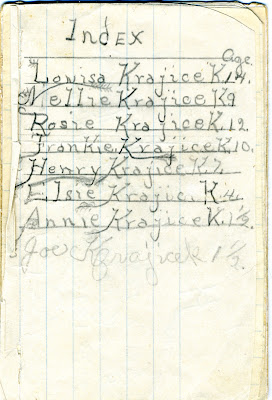 Index
Age
Louisa Krajicek. 14.
Nellie Krajicek 9
Rosie Krajicek. 12.
Frankie Krajicek. 10.
Henry Krajicek. 7.
Elsie Krajicek 4.
Annie Krajicek. 1½.
Joe Krajicek 1½.